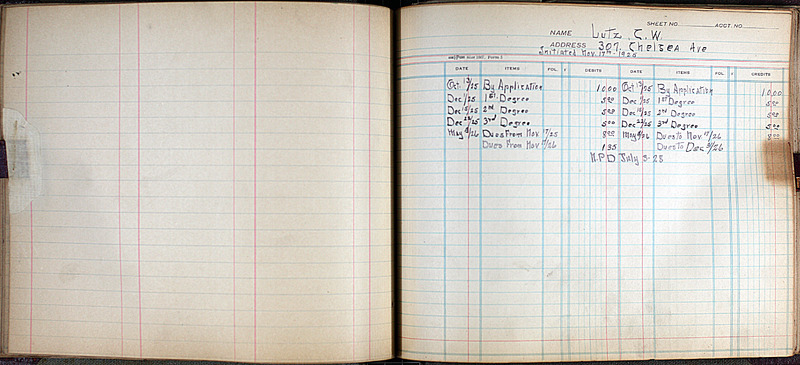 SHEET NO. ACCT. NO.
NAME Lutz, C. W.
ADDRESS 307 Chelsea Ave
Initiated Nov. 17th - 1925
DATE ITEMS FOL. DEBITS DATE ITEMS FOL. CREDITS
Oct 13/25 By Application 10.00 Oct 13/25 By Application 10.00
Dec 1/25 1st Degree 5.00 Dec 1/25 1st Degree 5.00
Dec 15/25 2nd Degree 5.00 Dec 15/25 2nd Degree 5.00
Dec 22/25 3rd Degree 5.00 Dec 22/25 3rd Degree 5.00
May 4/26 Dues From Nov 17/25 8.00 May 4/26 Dues To Nov 17/26 8.00
Dues From Nov 17/26 1.35 Dues To Dec 31/26
N.P.D July 3-28